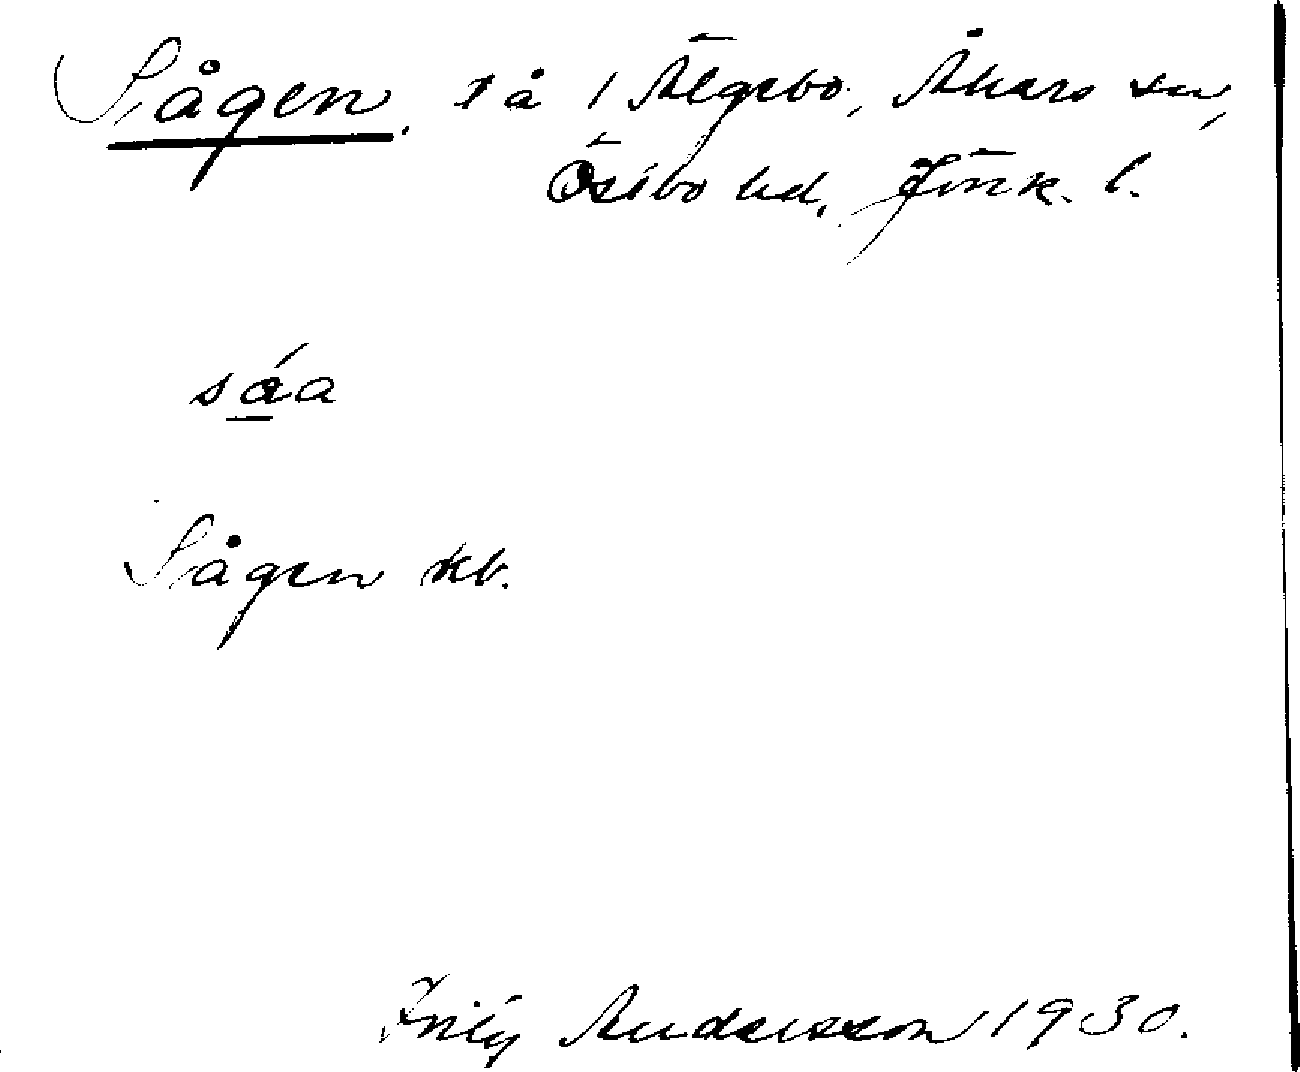 Sågen, t å i Älgebo, Åkers sn,
Östbo hd, Jönk. l.
sáa
Sågen kb.
Frity Andersson 1930.